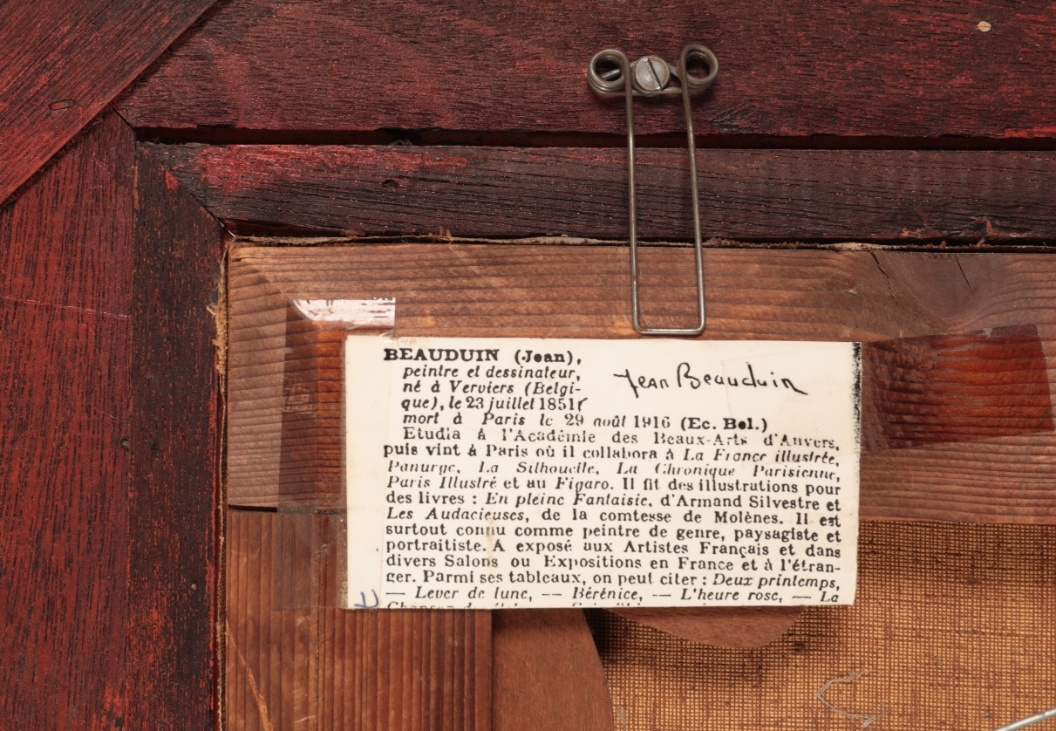 BEAUDUIN (Jean),
Jean Beauduin
peintre et dessinateur,
né à Verviers (Belgi-
que), le 23 juillet 1851,
mort à Paris le 29 août 1916 (Ec. Bel.)
Etudia à l'Académie des Beaux-Arts d'Anvers,
puis vint à Paris où il collabora à La France illustrée,
Panurge, La Silhouette, La Chronique Parisienne,
Paris Illustré et au Figaro. Il fit des illustrations pour
des livres : En pleine Fantaisie, d'Armand Silvestre et
Les Audacieuses, de la comtesse de Molènes. Il est
surtout connu comme peintre de genre, paysagiste et
portraitiste. A exposé aux Artistes Français et dans
divers Salons ou Expositions en France et à l'étran-
ger. Parmi ses tableaux, on peut citer : Deux printemps,
— Lever de lune, — Bérénice, — L'heure rose, — La